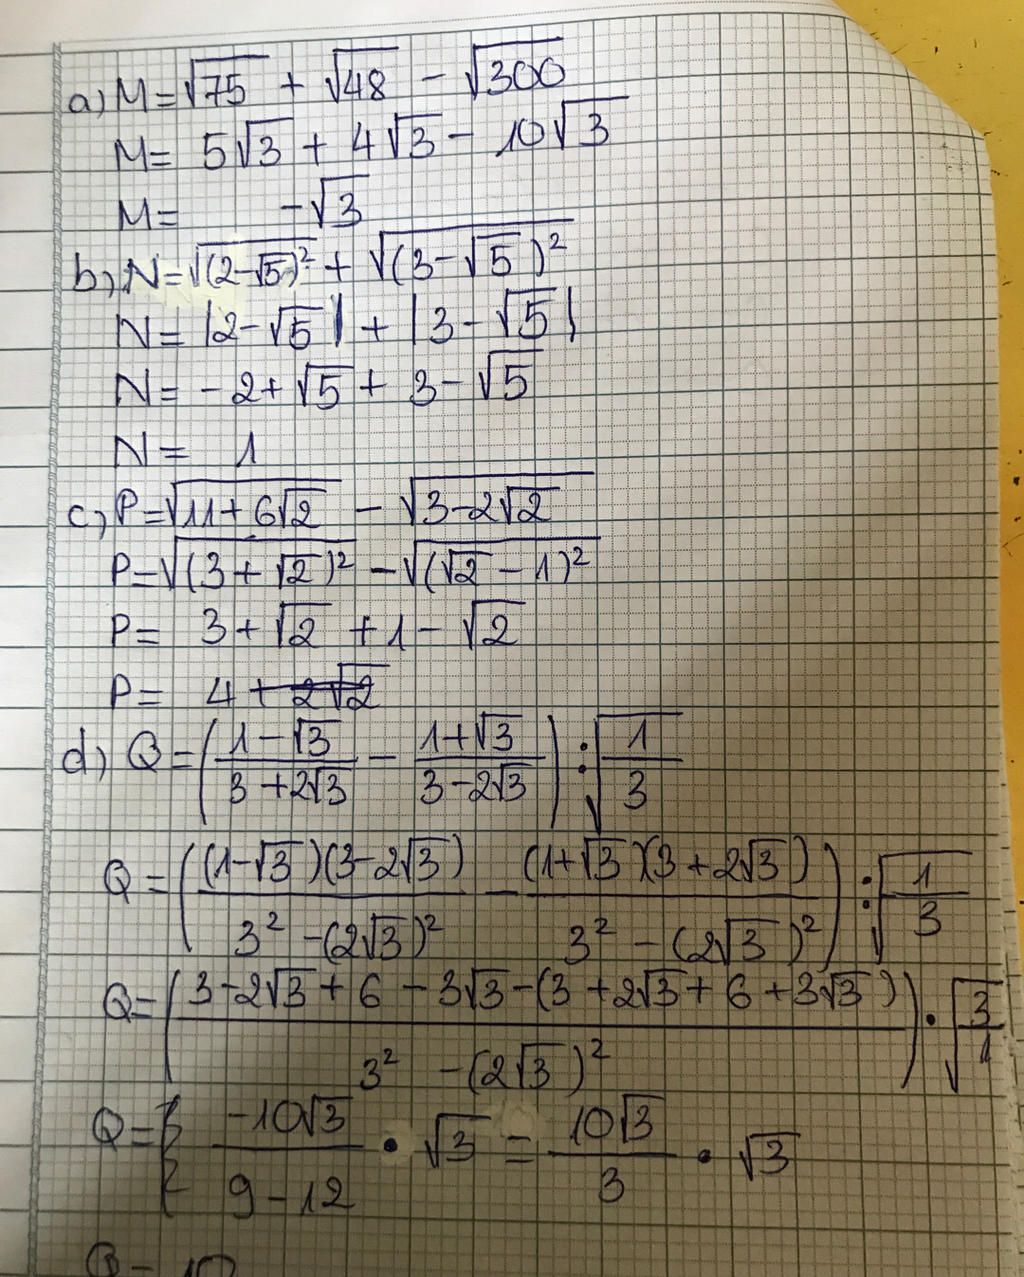 a) M = √75 + √48 − √300
M = 5√3 + 4√3 − 10√3
M = −√3
b) N = √(2−√5)² + √(3−√5)²
N = |2−√5| + |3−√5|
N = −2+√5 + 3−√5
N = 1
c) P = √(11+6√2) − √(3−2√2)
P = √(3+√2)² − √(√2−1)²
P = 3+√2 + 1 − √2
P = 4 + 2√2
d) Q = ((1−√3)/(3+2√3) − (1+√3)/(3−2√3)) : √(1/3)
Q = ((1−√3)(3−2√3)/(3²−(2√3)²) − (1+√3)(3+2√3)/(3²−(2√3)²)) : √(1/3)
Q = ((3−2√3+6−3√3−(3+2√3+6+3√3))/(3²−(2√3)²)) · √(3/1)
Q = (−10√3)/(9−12) · √3 = (10√3)/3 · √3
Q = 10